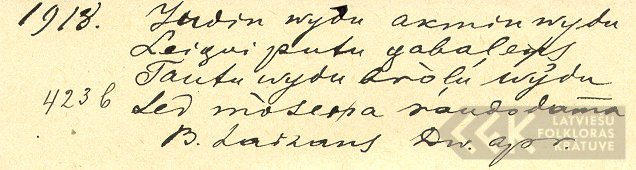 1918. Iudin wydu akmin wydu
Leigui putu gabaleņs
Tautu wydu bròlu wỳdu
423 b Sed mòseņa ráudodama
B. Laizans Dw. apr.
LATVIEŠU
FOLKLORAS
KRĀTUVE